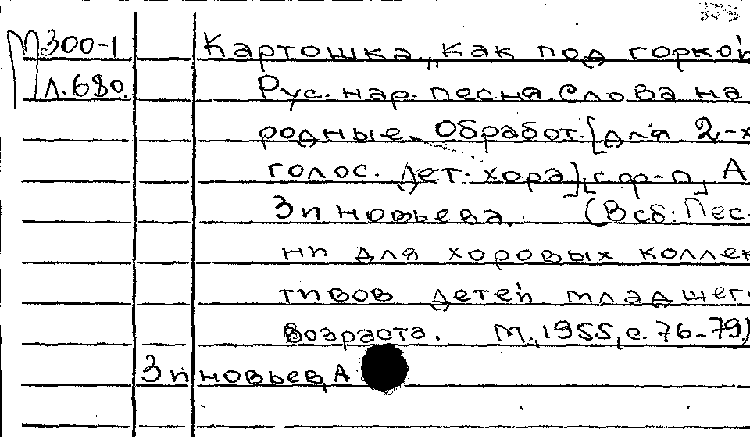 М300-1 Картошка, „как под горкой
Л.680. Рус. нар. песня. Слова на
родные. Обработ. [для 2-х
голос. дет. хора], [с ф-п] А.
Зиновьева. (В сб: Пес-
ни для хоровых коллек
тивов детей младшего
возраста. М., 1955, с. 76-79)
Зиновьев, А